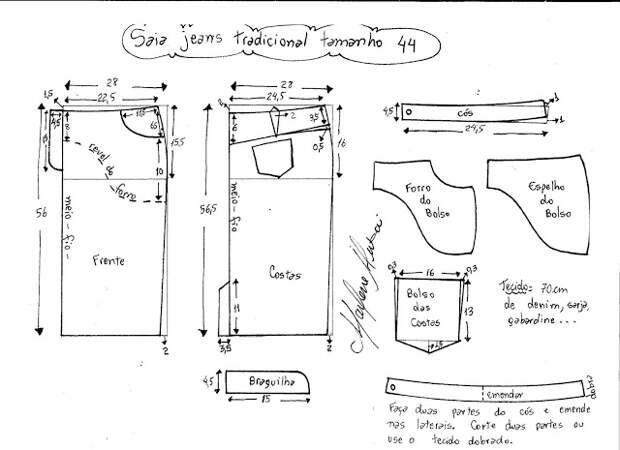 Saia jeans tradicional tamanho 44
28
22,5
1,5
4,5
8
11,5
6,5
15,5
10
revel do
forro
56
meio-fio-
Frente
2
28
24,5
2
2
3,5
6
0,5
16
56,5
meio-fio-
Costas
11
3,5
2
4,5
cós
1
1
24,5
Forro
do
Bolso
Espelho
do
Bolso
0,3
16
0,3
Bolso
das
Costas
13
2,5
Tecido= 70cm
de denim, sarja,
gabardine...
4,5
Braguilha
15
emendar
dobra
Faça duas partes do cós e emende
nas laterais. Corte duas partes ou
use o tecido dobrado.